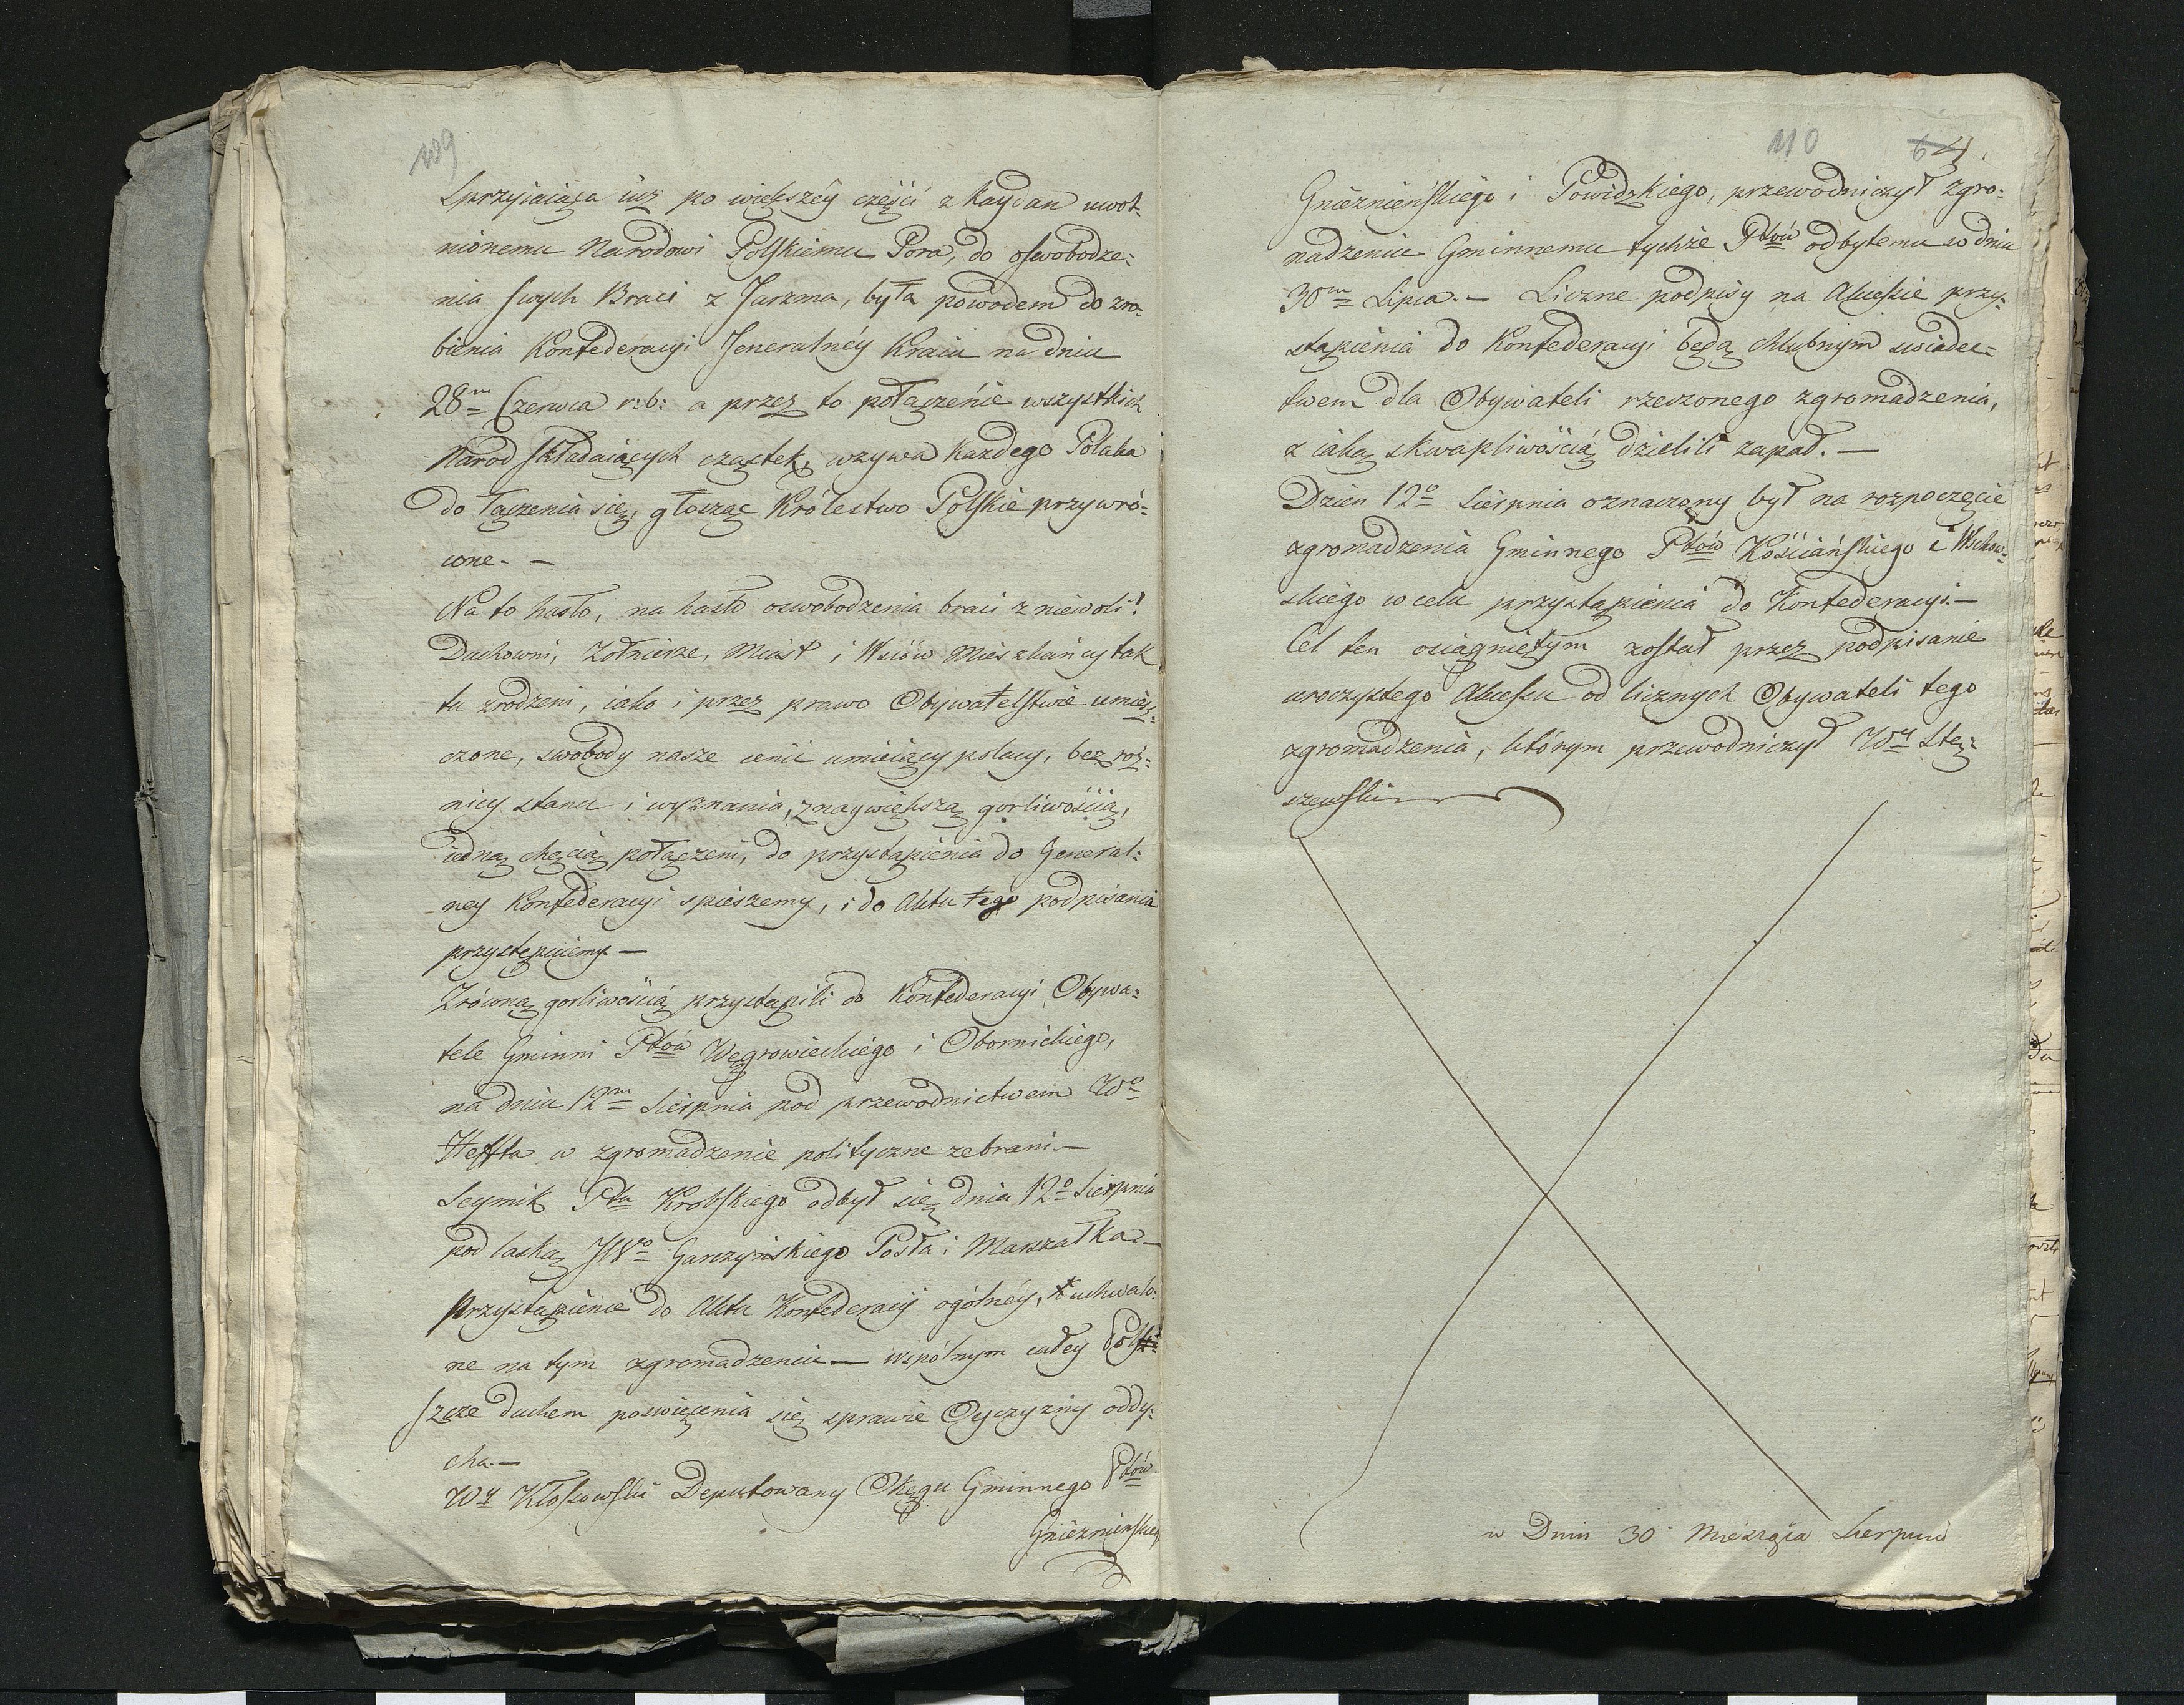 109
Sprzyiaiąca iuż po większéy części z kaydan uwol-
nionemu Narodowi Polskiemu Pora, do oswobodze-
nia swych Braci z Jarzma, była powodem do zro-
bienia Konfederacyi Jeneralnéy Kraiu na dniu
28m Czerwca r: b: a przez to połączénie wszystkich
Naród składaiących cząstek, wzywa Każdego Polaka
do łączenia się, głosząc Królestwo Polskie przywró-
cone. —
Na to hasło, na hasło oswobodzenia braci z niewoli!
Duchowni, Żołnierze, Miast i Wsiów Mieszkańcy tak
tu zrodzeni, iako i przez prawo Obywatelstwie umiesz-
czone, swobody nasze cenić umieiący polacy, bez róż-
nicy stanu i wyznania, z naywiększą gorliwością,
iedną chęcią połączeni, do przystąpienia do General-
ney Konfederacyi spieszemy, i do Aktu tego podpisania
przystępuiemy —
Z równą gorliwością przystąpili do Konfederacyi Obywa-
tele Gminni Ptów Wągrowieckiego i Obornickiego,
na dniu 12m Sierpnia pod przewodnictwem Wo
Heffta w zgromadzenie polityczne zebrani —
Seymik Ptu Krobskiego odbył się dnia 12o Sierpnia
pod laską JWo Garczyńskiego Posła i Marszałka —
Przystąpienie do Aktu Konfederacyi ogólnéy, uchwalo-
ne na tym zgromadzeniu — wspólnym całey Pol-
szcze duchem poswięcenia się sprawie Oyczyzny oddy-
cha. —
Wy Kłossowski Deputowany Okręgu Gminnego Ptów
Gnieznienskiego
110
64
Gniéznieńskiego i Powidzkiego, przewodniczył zgro-
madzeniu Gminnemu tychże Ptów odbytemu w dniu
30m Lipca. — Liczne podpisy na Akcessie przy-
stąpienia do Konfederacyi będą chlubnym swiadec-
twem dla Obywateli rzeczonego zgromadzenia,
z iaką skwapliwością dzielili zapał. —
Dzien 12o Sierpnia oznaczony był na rozpoczęcie
zgromadzenia Gminnego Ptów Kościańskiego i Wschow-
skiego w celu przystąpienia do Konfederacyi. —
Cel ten osiągniętym został przez podpisanie
uroczystego Akcessu od licznych Obywateli tego
zgromadzenia, którym przewodniczył Wy Stę-
szewski
w Dniu 30 Miesząca Sierpnia